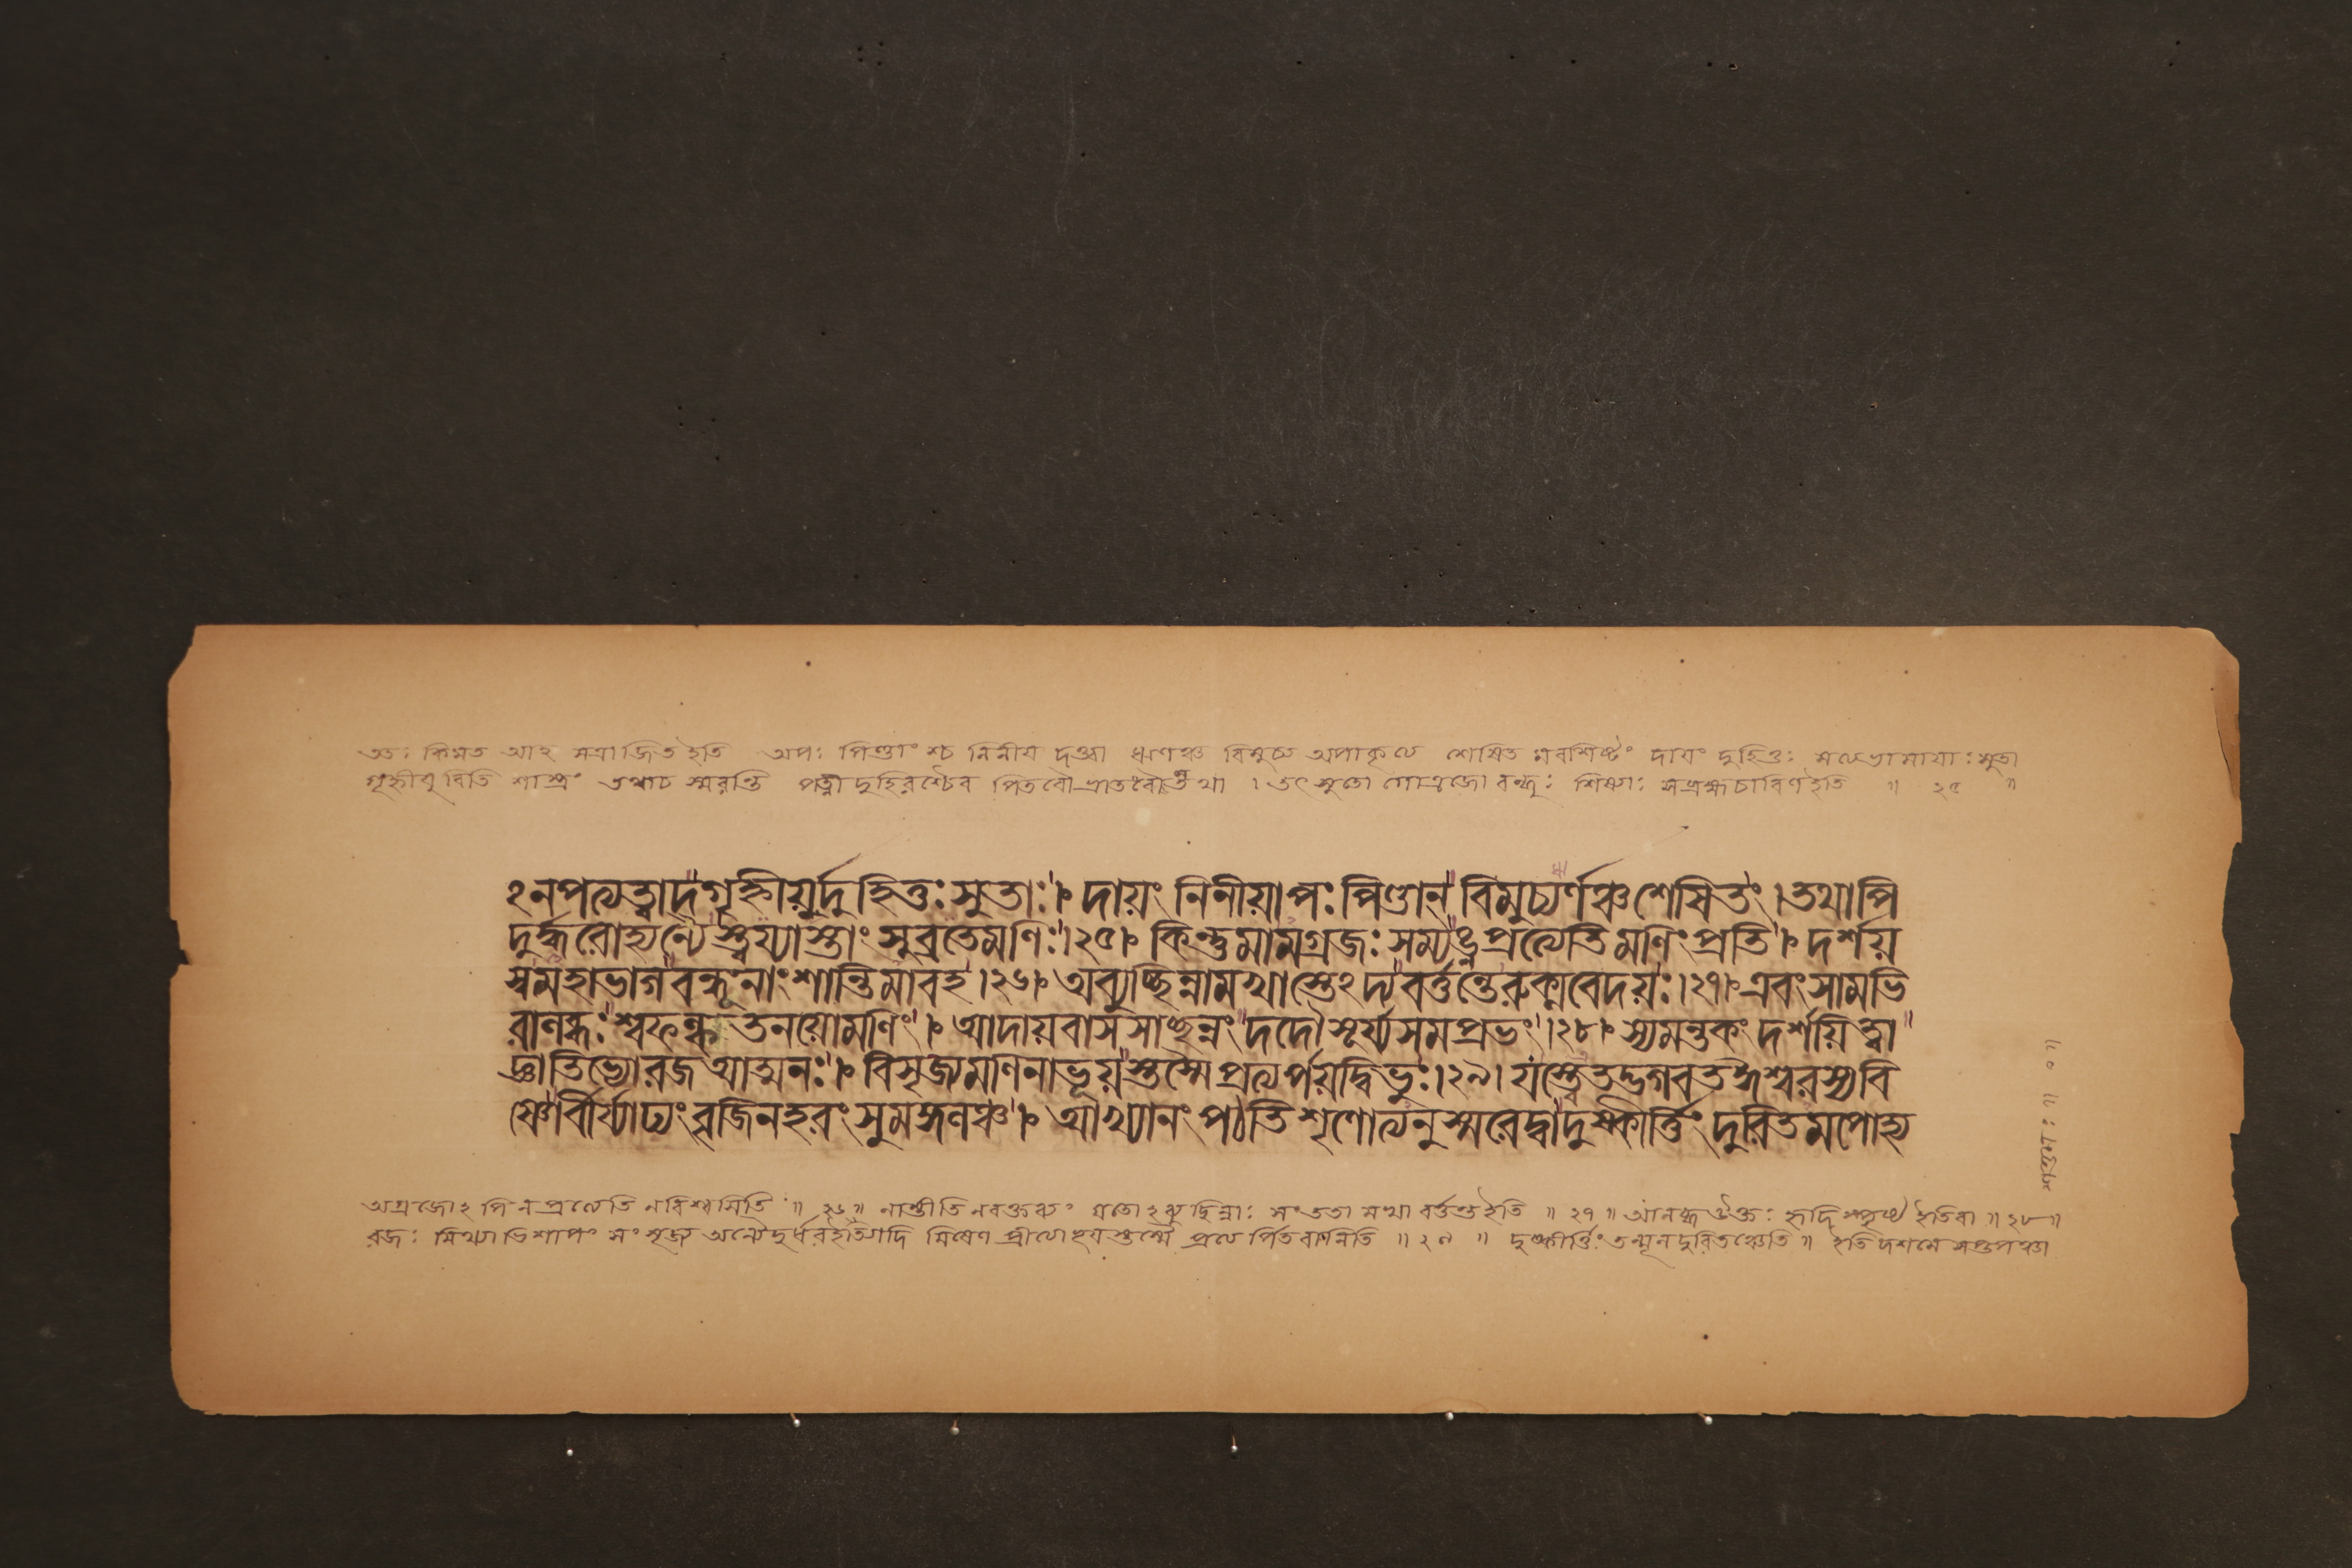 ত্তঃ কিমত আহ সত্রাজিত ইতি অপঃ পিণ্ডাংশ্চ নিনীয দত্ত্বা ঋণঞ্চ বিমুচ্য অপাকৃত্য শেষিত মবশিষ্টং দাযং দুহিতুঃ সত্যভামাযাঃ সুতা
গৃহ্নীযুরিতি শাস্ত্রং তথাচ স্মরন্তি পত্নী দুহিরশ্চৈব পিতরৌ ভ্রাতরৌস্তথা । তৎ সুতো গোত্রজো বন্ধুঃ শিষ্যঃ সব্রহ্মচারিণ ইতি ॥ ২৫ ॥
ঽনপত্যত্বাদ্গৃহ্নীয়ুর্দুহিতুঃ সুতাঃ । দায়ং নিনীয়াপঃ পিণ্ডান্ বিমুচ্যর্ণঞ্চ শেষিতং । তথাপি
দুর্দ্ধরোহ্যন্যৈস্ত্বয্যাস্তাং সুব্রতেমণিঃ । ২৫ । কিন্তুমামগ্রজঃ সম্যঙ্নপ্রত্যেতিমণিংপ্রতি । দর্শয়
স্বমহাভাগ বন্ধূনাং শান্তিমাবহ । ২৬ । অব্যুচ্ছিন্নামখাস্তেঽদ্য বর্ত্তন্তেরুক্মবেদয়ঃ । ২৭ । এবংসামভি
রালব্ধঃ শ্বফল্ক তনয়োমণিং । আদায়বাসসাচ্ছন্নং দদৌ সূর্য্যসমপ্রভং । ২৮ । স্যমন্তকং দর্শয়িত্বা
জ্ঞাতিভ্যোরজআত্মনঃ । বিসৃজ্যমণিনাভূয়স্তস্মৈ প্রত্যর্পয়দ্বিভুঃ । ২৯ । যস্ত্বেতদ্ভগবতঈশ্বরস্যবি
ষ্ণোর্বীর্য্যাঢ্যং বৃজিনহরং সুমঙ্গলঞ্চ । আখ্যানং পঠতি শৃণোত্যনুস্মরেদ্বাদুষ্কীর্ত্তিং দুরিতমপোহ্য
অগ্রজোঽপি ন প্রত্যেতি ন বিশ্বসিতি ॥ ২৬ ॥ নাস্তীতি নবক্তব্যং যতোঽব্যুচ্ছিন্নাঃ সংততা মখা বর্ত্তন্ত ইতি ॥ ২৭ ॥ আলব্ধ উক্তঃ হৃদি স্পৃষ্ট ইতিবা ॥ ২৮ ॥
রজঃ মিথ্যাভিশাপং সংমৃজ্য অন্যৈর্দুর্ধর ইত্যাদি মিষেণ প্রত্যর্পিতবানিতি ॥ ২৯ ॥ দুষ্কীর্ত্তিং তন্মূলদুরিতঞ্চেতি ॥ ইতি দশমে সপ্তপঞ্চা